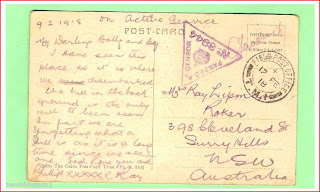 9.2.1918 on Active Service
POST-CARD
My Darling Dolly and Boy
I have seen this
place as it is where
we disembarked
the hill in the back
ground is the only
hill to been seen
In fact we are
forgetting what a
hill is as it is a long
time since we seen
one. and how you and
XXXXXX Ray
PASSED
CENSOR
No 3944
FIELD POST OFFICE
Mrs Ray
Roker
398 Cleveland St
Surry Hills
NSW
Australia
The Cairo Post-Card Trust